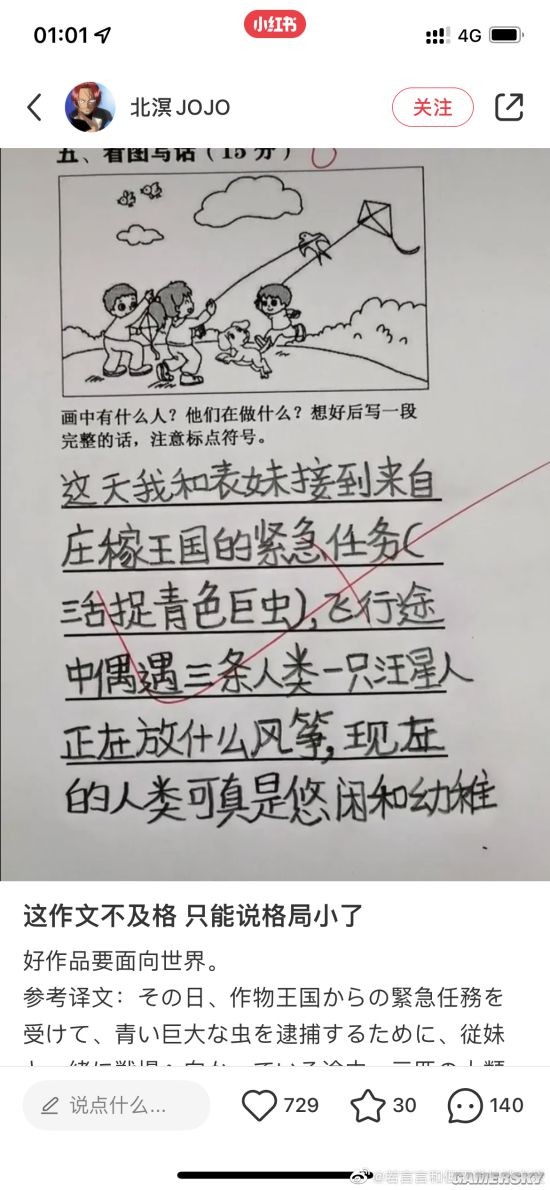 01:01
小红书
4G
北溟JOJO
关注
五、看图写话（15分）
画中有什么人？他们在做什么？想好后写一段
完整的话，注意标点符号。
这天我和表妹接到来自
庄稼王国的紧急任务(
活捉青色巨虫),飞行途
中偶遇三条人类一只汪星人
正在放什么风筝,现在
的人类可真是悠闲和幼稚
这作文不及格 只能说格局小了
好作品要面向世界。
参考译文：その日、作物王国からの緊急任務を
受けて、青い巨大な虫を逮捕するために、従妹
说点什么...
729
30
140
GAMERSKY